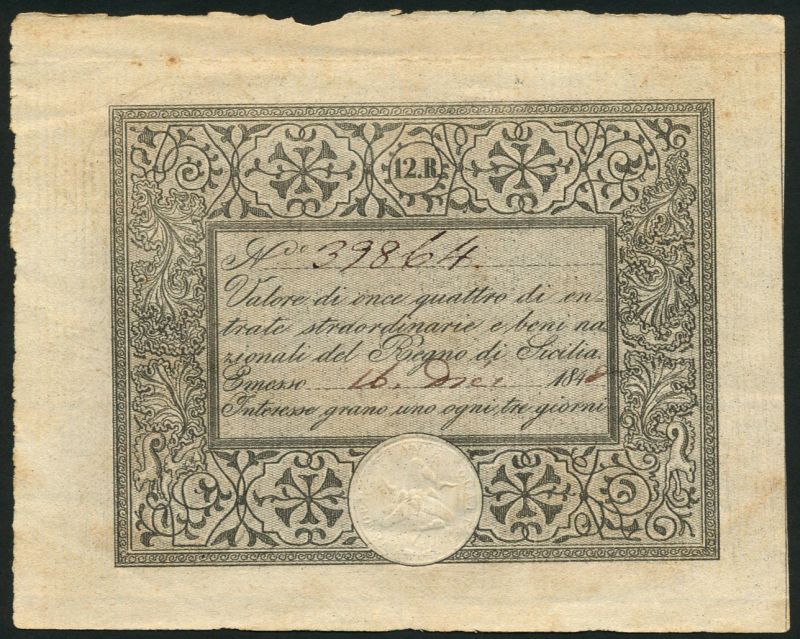 12.R.
N.º 39864.
Valore di once quattro di en-
trate straordinarie e, beni na
zionali del Regno di Sicilia.
Emesso 16. Dice 1848
Interesse grano uno ogni, tre giorni